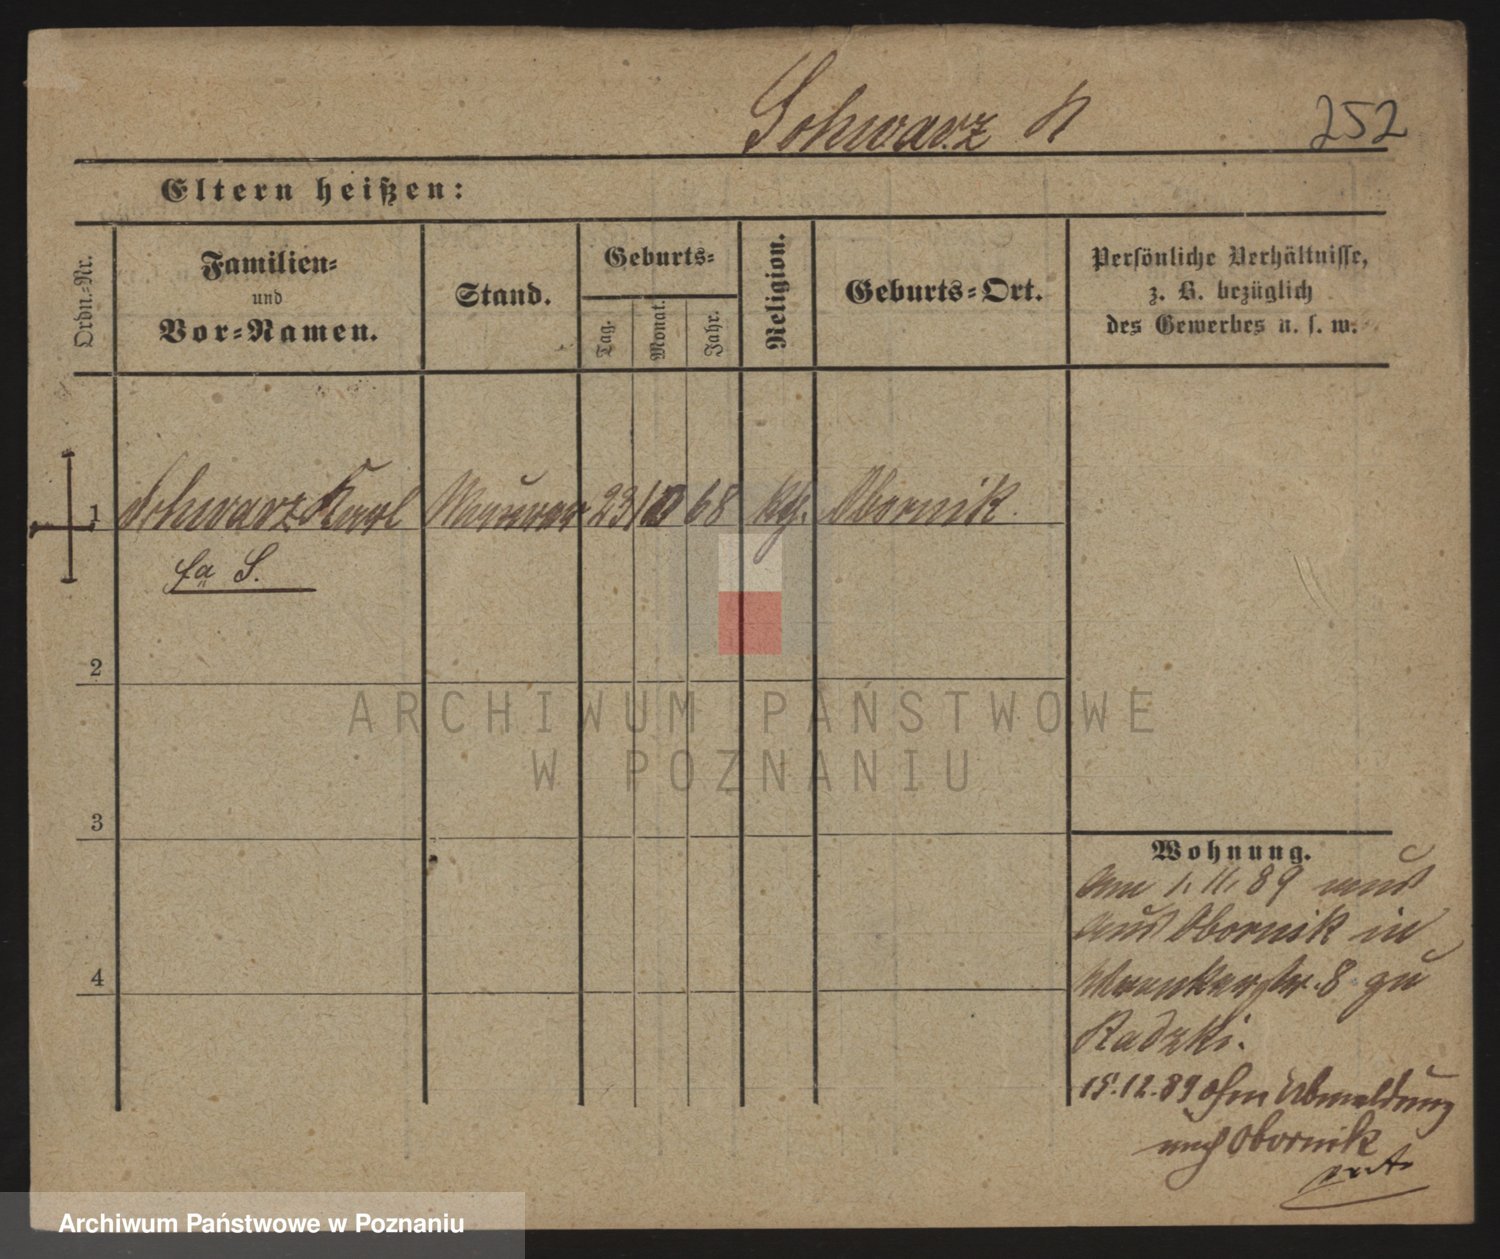 Schwarz K
252
Eltern heißen:
Ordn.-Nr.
Familien-
und
Vor-Namen.
Stand.
Geburts-
Tag.
Monat.
Jahr.
Religion.
Geburts-Ort.
Persönliche Verhältnisse,
z. B. bezüglich
des Gewerbes u. s. w.
1 Schwarz Karl Maurer 23 10 68 kth. Obornik
S.
2
3
4
Wohnung.
Am 1. 11. 89
aus Obornik in
8 zu
Radzki.
15. 12. 89 ohne Abmeldung
nach Obornik
ARCHIWUM PAŃSTWOWE
W POZNANIU
Archiwum Państwowe w Poznaniu